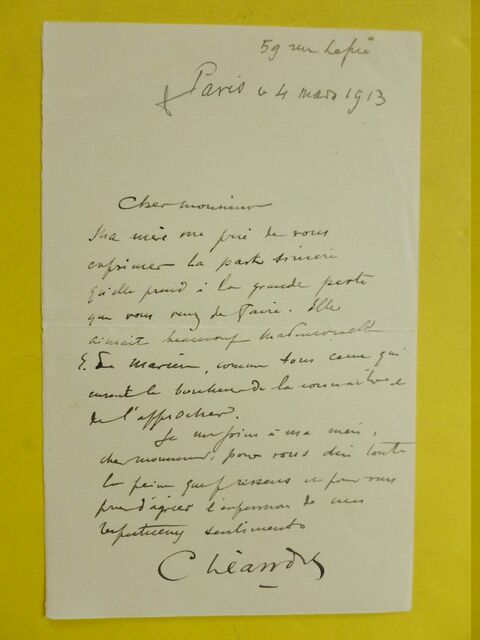 59 rue Lepic
Paris le 4 mars 1913
Cher monsieur
Ma mère me prie de vous
exprimer la part sincère
qu'elle prend à la grande perte
que vous venez de faire. Elle
aimait beaucoup Mademoiselle
G. de Marien, comme tous ceux qui
eurent le bonheur de la connaitre et
de l'approcher.
Je me joins à ma mère,
cher monsieur, pour vous dire toute
la peine que je ressens et pour vous
prier d'agréer l'expression de mes
respectueux sentiments
C Léandre